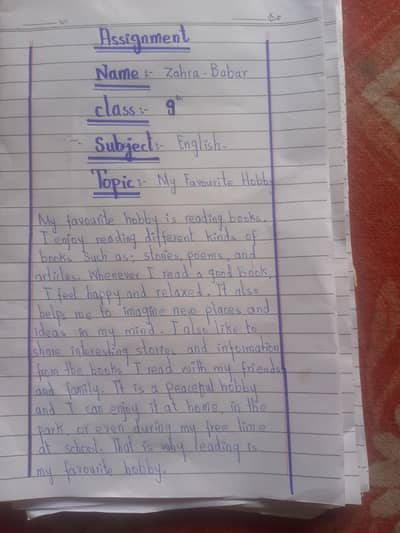 Assignment
Name :- Zahra - Babar
class :- 9th
Subject :- English.
Topic :- My Favourite Hobby
My favourite hobby is reading books.
I enjoy reading different kinds of
books such as; stories, poems, and
articles. Whenever I read a good book,
I feel happy and relaxed. It also
helps me to imagine new places and
ideas in my mind. I also like to
share interesting stories and information
from the books I read with my friends
and family. It is a peaceful hobby
and I can enjoy it at home, in the
park, or even during my free time
at school. That is why reading is
my favourite hobby.